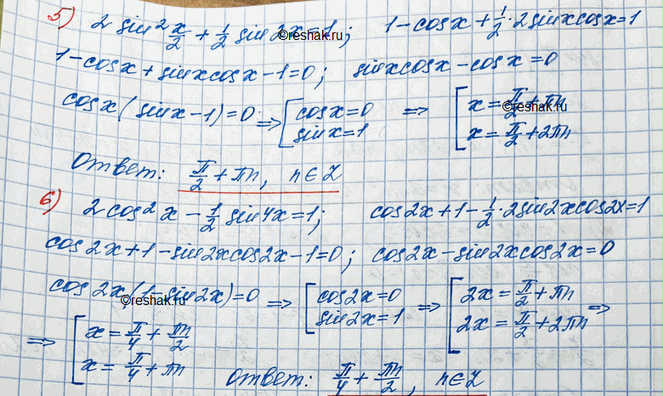 5) 2 sin² x/2 + 1/2 sin 2x = 1; 1 - cos x + 1/2 · 2 sin x cos x = 1
1 - cos x + sin x cos x - 1 = 0; sin x cos x - cos x = 0
cos x (sin x - 1) = 0 ⇒ [ cos x = 0 ⇒ [ x = π/2 + πn
sin x = 1 x = π/2 + 2πn
Ответ: π/2 + πn, n ∈ Z
6) 2 cos² x - 1/2 sin 4x = 1; cos 2x + 1 - 1/2 · 2 sin 2x cos 2x = 1
cos 2x + 1 - sin 2x cos 2x - 1 = 0; cos 2x - sin 2x cos 2x = 0
cos 2x (1 - sin 2x) = 0 ⇒ [ cos 2x = 0 ⇒ [ 2x = π/2 + πn ⇒
sin 2x = 1 2x = π/2 + 2πn
⇒ [ x = π/4 + πn/2
x = π/4 + πn
Ответ: π/4 + πn/2, n ∈ Z
©reshak.ru
©reshak.ru
©reshak.ru